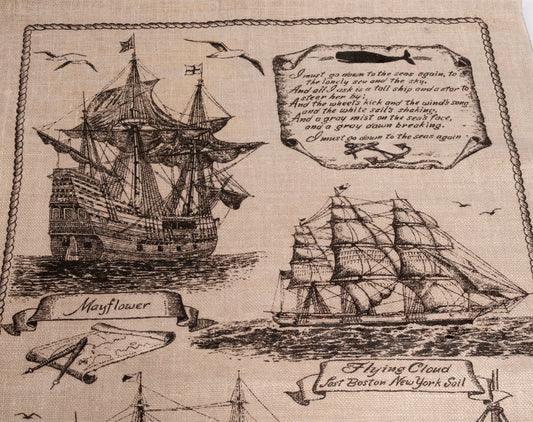 I must go down to the seas again, to
the lonely sea and the sky,
And all I ask is a tall ship and a star to
steer her by;
And the wheel's kick and the wind's song
and the white sail's shaking,
And a gray mist on the sea's face,
and a gray dawn breaking.
I must go down to the seas again
Mayflower
Flying Cloud
Last Boston New York Sail